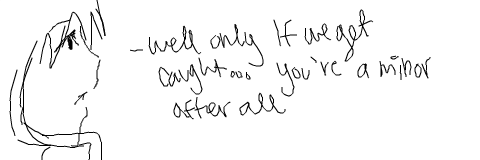 - well only if we get
caught... you're a minor
after all